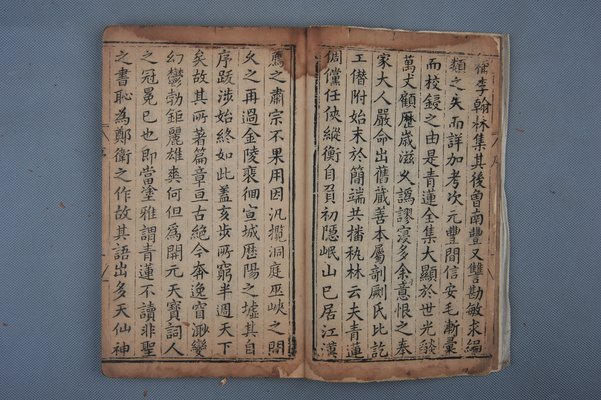 李翰林集其後曾南豐又讐勘敏求編
類之失而詳加考次元豐間信安毛漸彙
而校鋟之由是青蓮全集大顯於世光燄
萬丈顧歷歲滋久譌謬寖多余意恨之奉
家大人嚴命出舊蔵善本屬剞劂氏比訖
工僭附始末於簡端共播秇林云夫青蓮
倜儻任俠縱衡自負初隱岷山已居江漢
薦之肅宗不果用因汎攬洞庭巫峽之間
久之再過金陵裵徊宣城歴陽之墟其自
序䟦涉始終如此蓋亥步所窮半週天下
矣故其所著篇章亘古絶今奔逸窅渺變
幻鸞勃鉅麗雄爽何但為開元天寶詞人
之冠冕已也即當塗雅謂青蓮不讀非聖
之書恥為鄭衛之作故其語出多天仙神